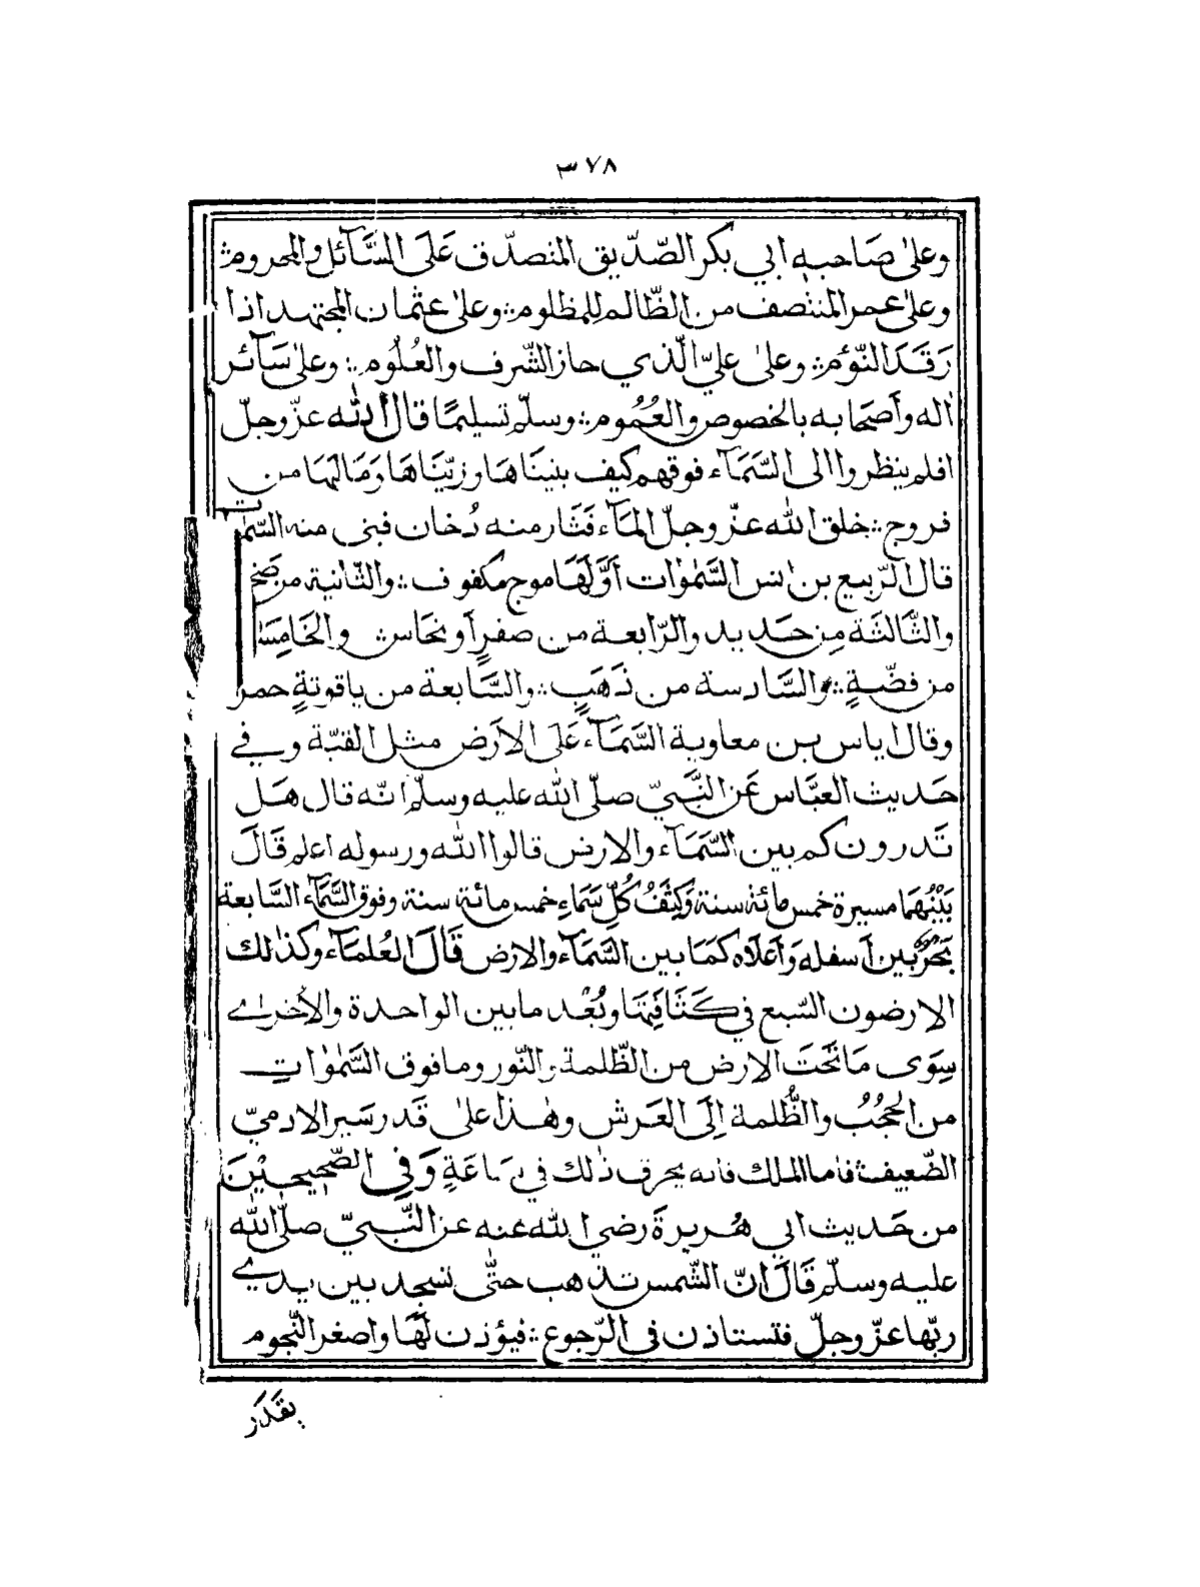 ٣٧٨
وعلىٰ صَاحبهٖ ابي بكر الصّدّيق المتصدّق عَلَى السَّآئل والمحروم ؞
وعلىٰ عمر المنتصف من الظّالم للمظلوم ؞ وعلىٰ عثمان المجتهد اذا
رَقَدَ النّوّم ؞ وعلىٰ عليّ الّذي حاز الشّرف والعُلُوم ؞ وعلىٰ سَآئر
اٰله وأصحابه بالخصوص والعُمُوم ؞ وسلّم تسليمًا قال اللّٰه عزّوجلّ
افلم ينظروا الى السَّمَآء فوقهم كيف بنينَاهَا وزيّنّاهَا وَمَالهَا من
فروج ؞ خلق اللّٰه عزّوجلّ المَآء فَثَار منه دُخان فبنى منه السّمٰوٰت
قال الرّبيع بن انس السَّمٰوٰات أوّلهَا موج مكفوف ؞ والثّانية من صَخر
والثَّالثَة مِن حَديد والرّابعة من صفرٍ أو نحَاس ؞ والخَامِسَة
من فضّةٍ ؞ والسَّادسة من ذَهَبٍ ؞ والسَّابعة من ياقوتةٍ حمر
وقال اياس بن معاوية السَّمَآء عَلَى الاَرض مثل القبّة وفي
حَديث العبَّاس عَن النَّبيّ صلّى اللّٰه عليه وسلّم انّه قال هَل
تَدرون كم بين السَّمَآء والارض قالوا اللّٰه ورسوله اعلم قَالَ
بَيْنهُمَا مسيرة خمس مائة سنة وَكِثَفُ كُلّ سَمَاءٍ خمس مائة سنة وفوق السَّمَآء السَّابعة
بَحْرٌ بين أسفله وَأعلَاه كمَا بين السَّمَآء والارض قَالَ العُلمَآء وكذٰلك
الارضون السّبع في كَثَافِتهَا وبُعْد مابين الواحدة والأخرٰى
سِوَى مَاتَحتَ الارض من الظّلمة والنّور ومافوق السَّمٰوٰات
من الحُجُبُ والظُّلمة إلَى العَرش وهٰذا علىٰ قَدر سَير الادميّ
الضّعيف فأما الملك فانه يخرق ذٰلك في سَاعَةٍ وَفِي الصّحيحَيْنَ
من حَديث ابي هُريرةَ رضي اللّٰه عنه عن النَّبيّ صلّى اللّٰه
عليه وسلّم قَالَ انّ الشّمس تذهب حتّى تسجد بين يدي
ربّها عزّوجلّ فتستاذن فى الرّجوع ؞ فيؤذن لَهَا واصغر النّجوم
بقَدَر